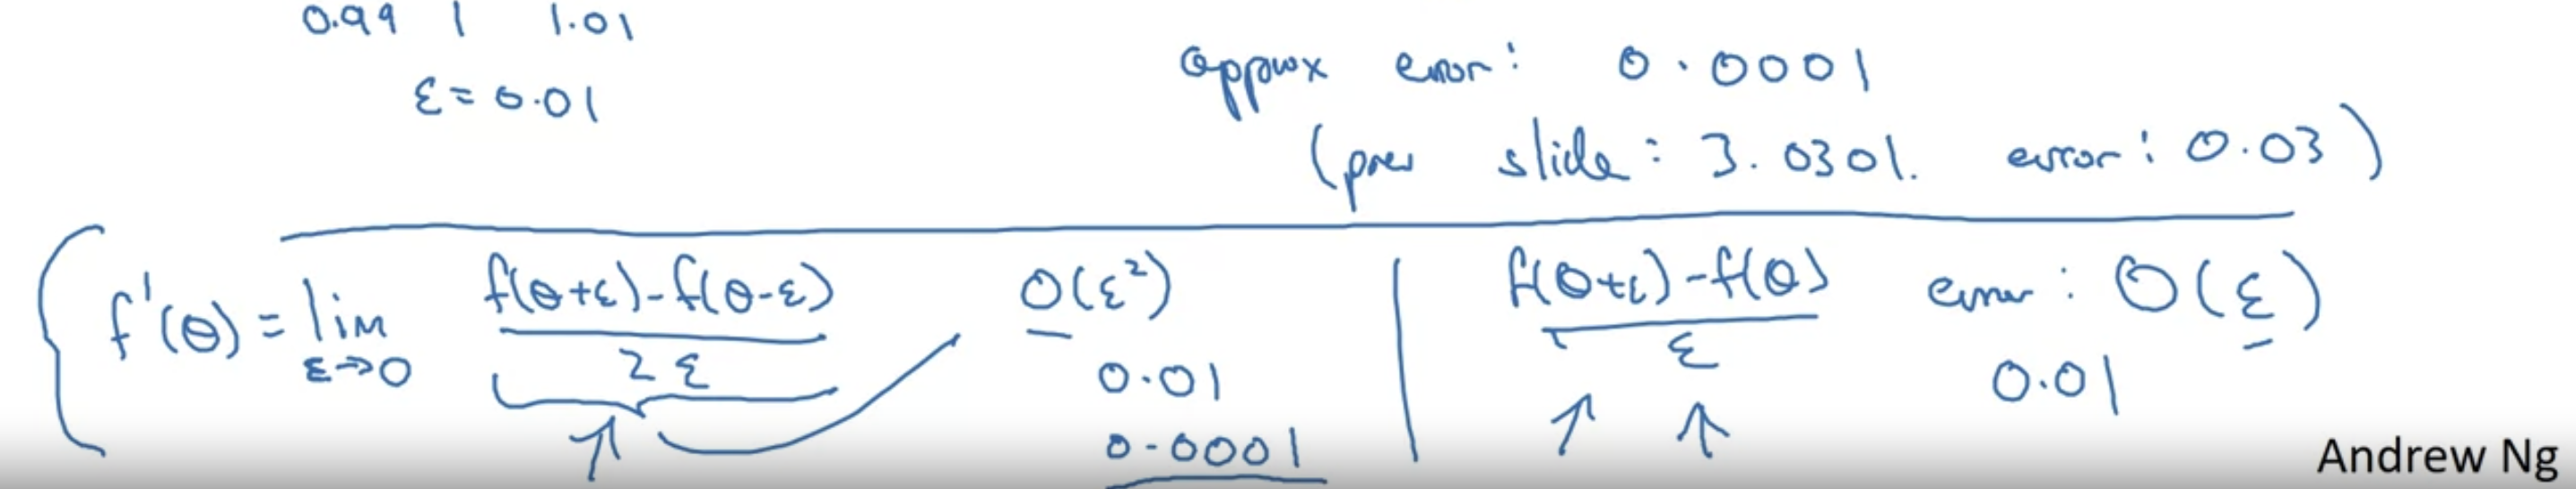 0.99 1 1.01
ε = 0.01
approx error: 0.0001
(prev slide: 3.0301. error: 0.03)
f'(θ) = lim ε→0 f(θ+ε) - f(θ-ε) / 2ε O(ε²) | f(θ+ε) - f(θ) / ε error: O(ε)
0.01 0.01
0.0001
Andrew Ng